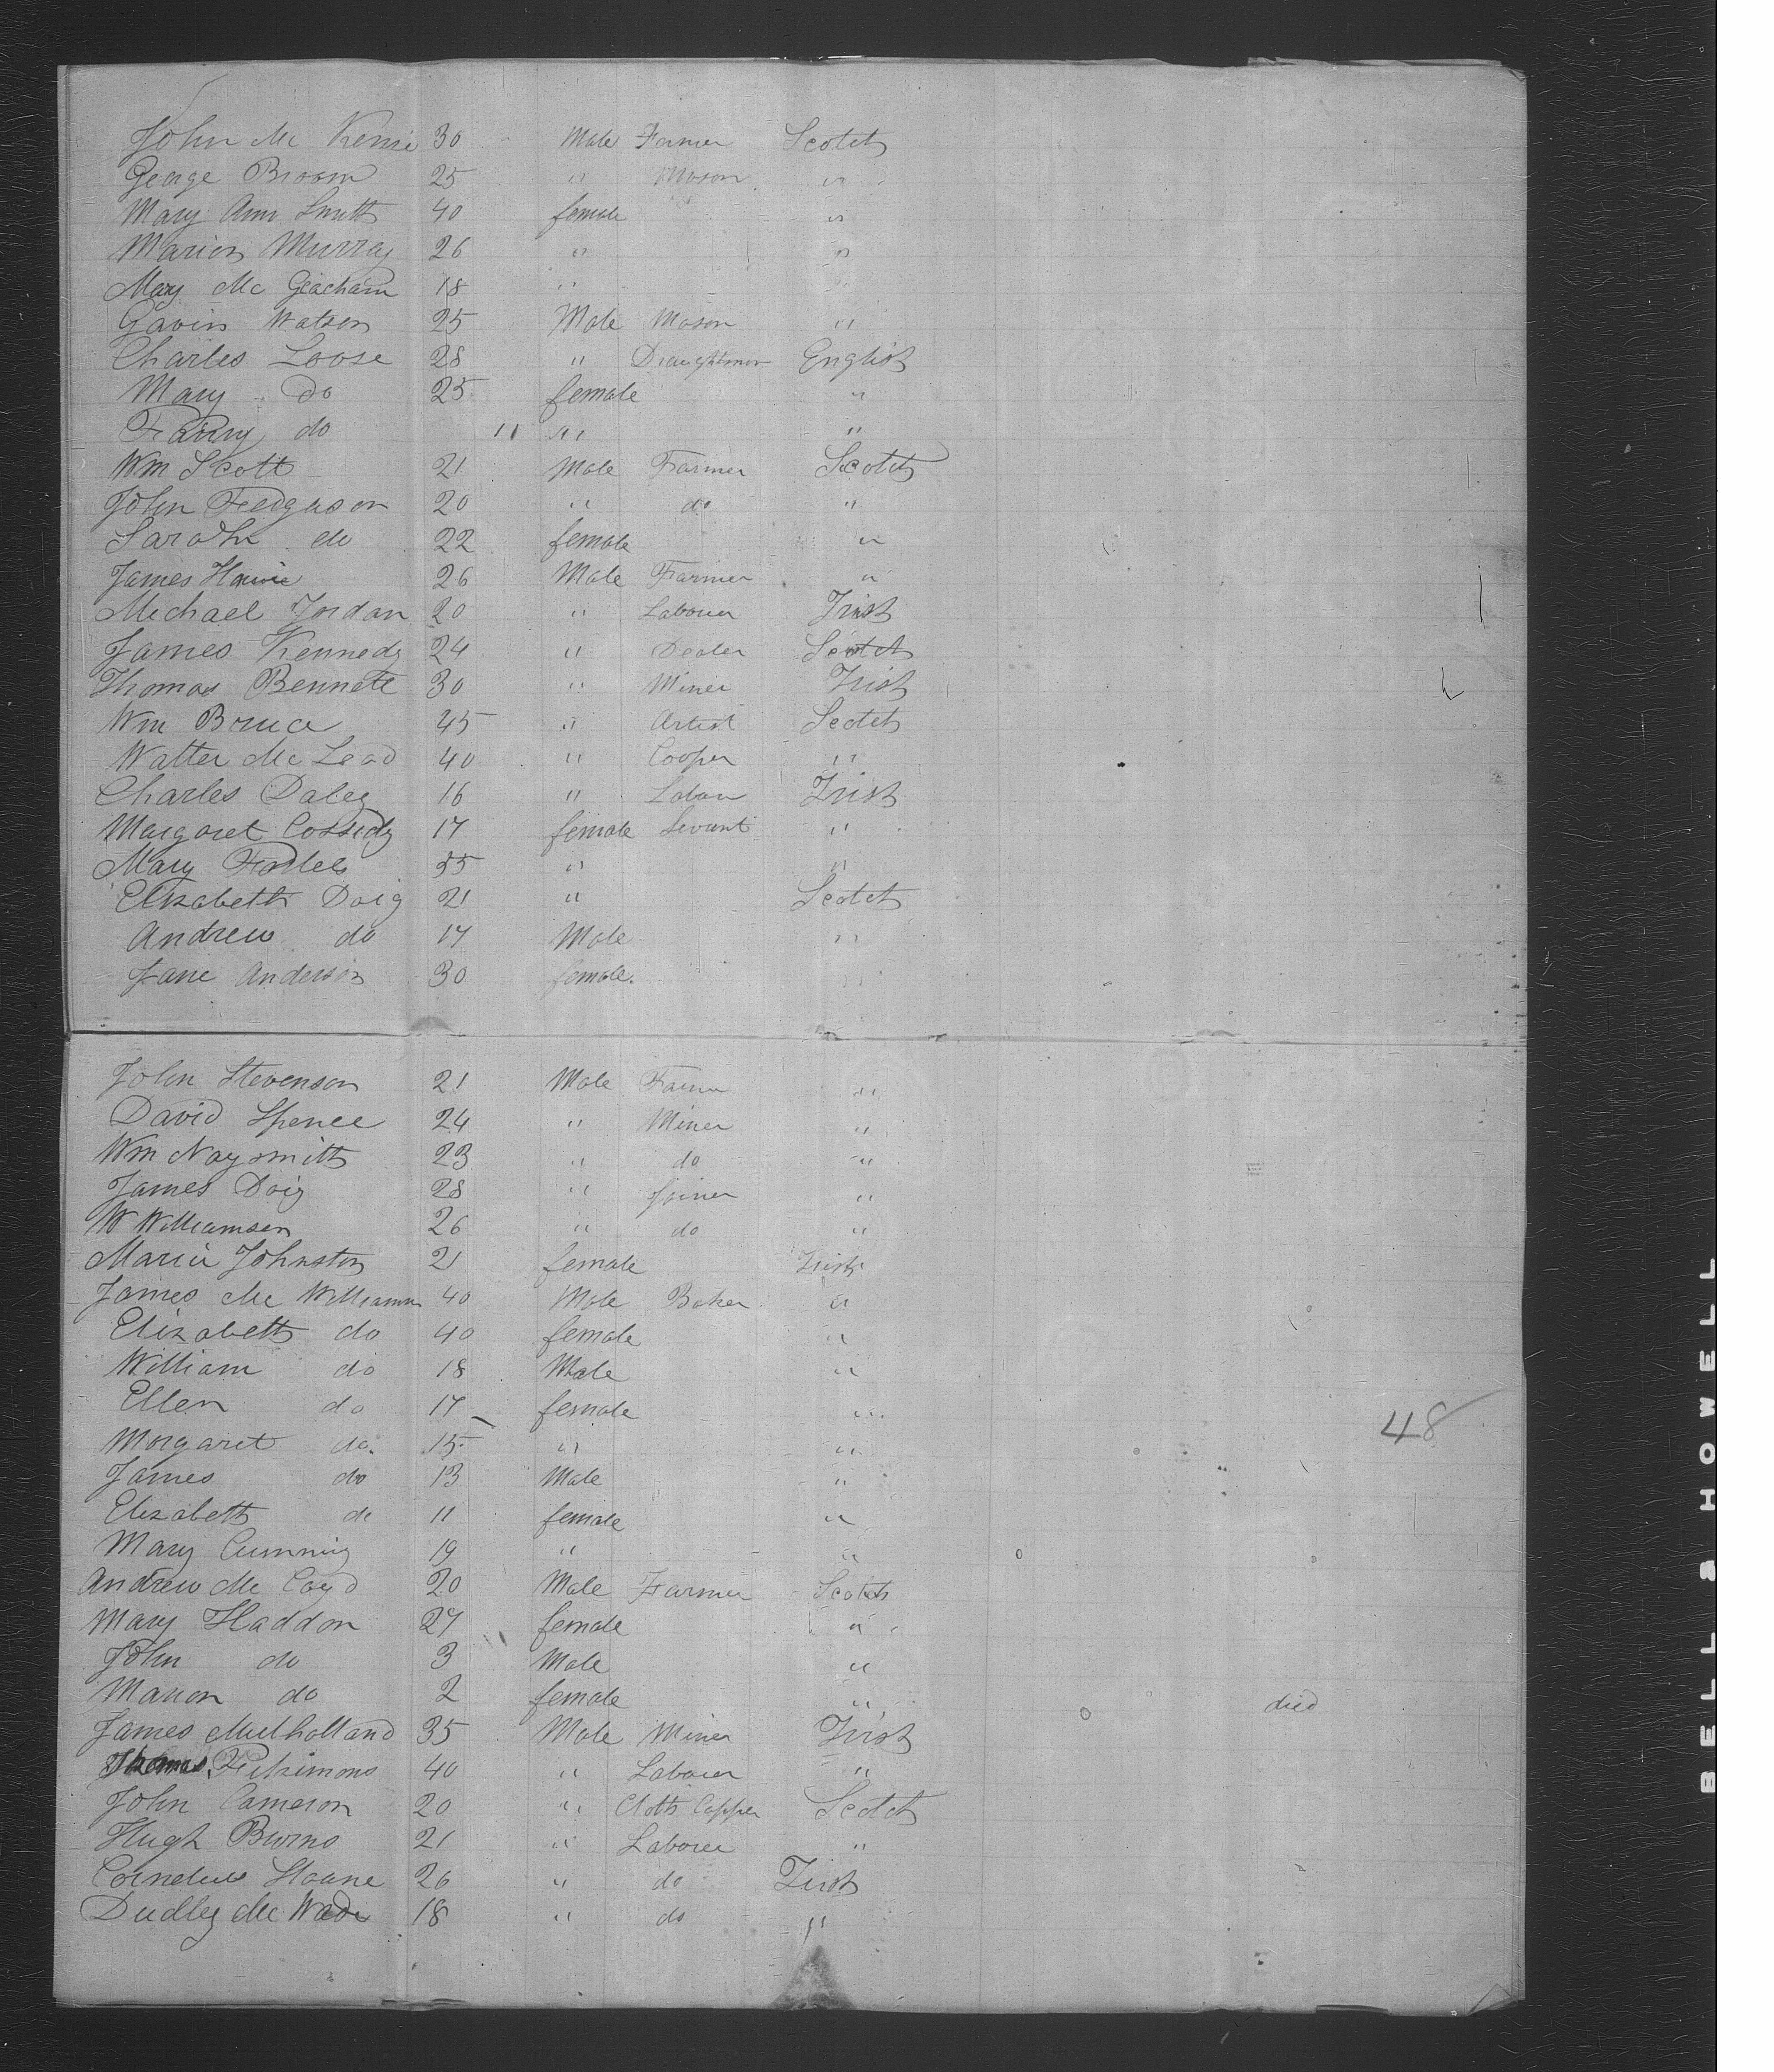 John Mc Kensie 30 Male Farmer Scotch
George Broom 25 " Mason "
Mary Ann Smith 40 female "
Marion Murray 26 " "
Mary Mc Geacham 18 " "
Gavin Watson 25 Male Mason "
Charles Loose 28 " Draughtsman English
Mary do 25 female "
Fanny do 11 " "
Wm Scott 21 Male Farmer Scotch
John Ferguson 20 " do "
Sarah do 22 female "
James Howie 26 Male Farmer "
Michael Jordan 20 " Laborer Irish
James Kennedy 24 " Dealer Scotch
Thomas Bennett 30 " Miner Irish
Wm Bruce 45 " Artist Scotch
Walter Mc Leod 40 " Cooper "
Charles Daley 16 " Labour Irish
Margaret Cossidy 17 female Servant "
Mary 55 " "
Elizabeth Doig 21 " Scotch
Andrew do 17 Male "
Jane Anderson 30 female. "
John Stevenson 21 Male Farmer "
David Spence 24 " Miner "
Wm Naysmith 23 " do "
James Doig 28 " Joiner "
W Williamson 26 " do "
Maria Johnston 21 female Irish
James Mc Williamm 40 Male Baker "
Elizabeth do 40 female "
William do 18 Male "
Ellen do 17 female "
48
Margaret do. 15 " "
James do 13 Male "
Elizabeth do 11 female "
Mary Cumming 19 " "
Andrew Mc 20 Male Farmer Scotch
Mary Haddon 27 female "
John do 3 Male "
Marion do 2 female " died
James Mulholland 35 Male Miner Irish
Thomas Fitzimons 40 " Laborer "
John Cameron 20 " Cloth Capper Scotch
Hugh Burns 21 " Laborer "
Cornelius Hoane 26 " do Irish
Dudley Mc Wade 18 " do "
BELL & HOWELL